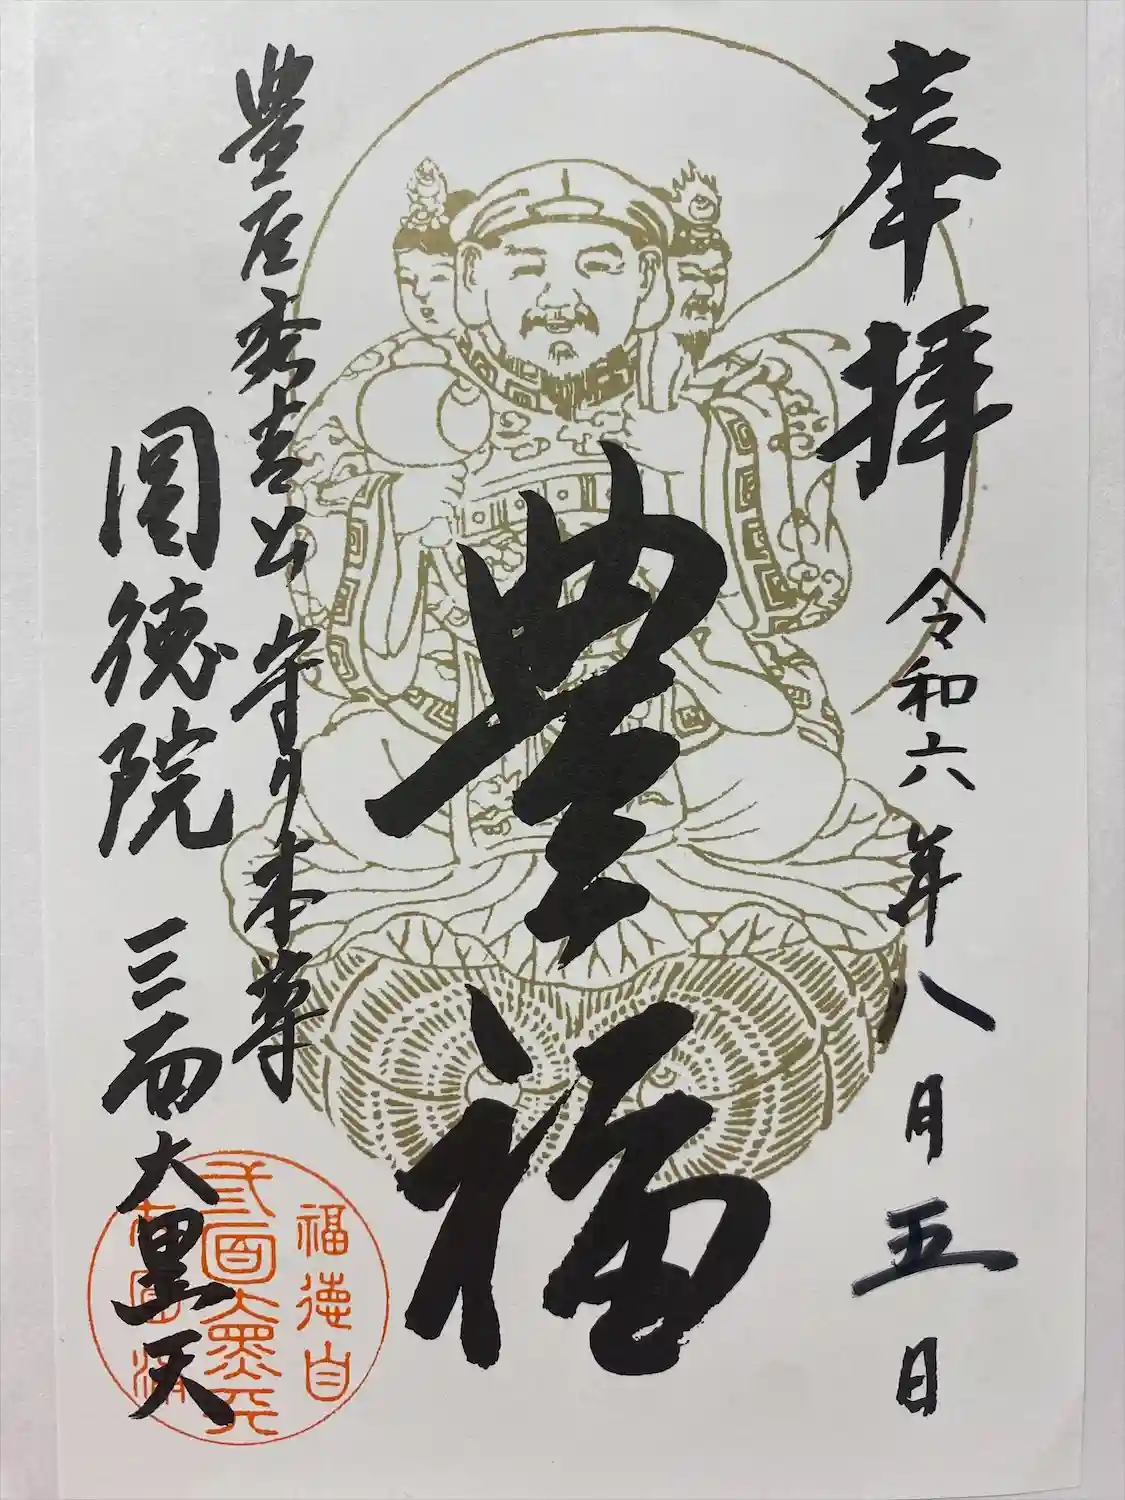 奉拝
令和六年八月五日
豊福
豊臣秀吉公守り本尊
圓徳院 三面大黒天
福徳自
三面大黒天